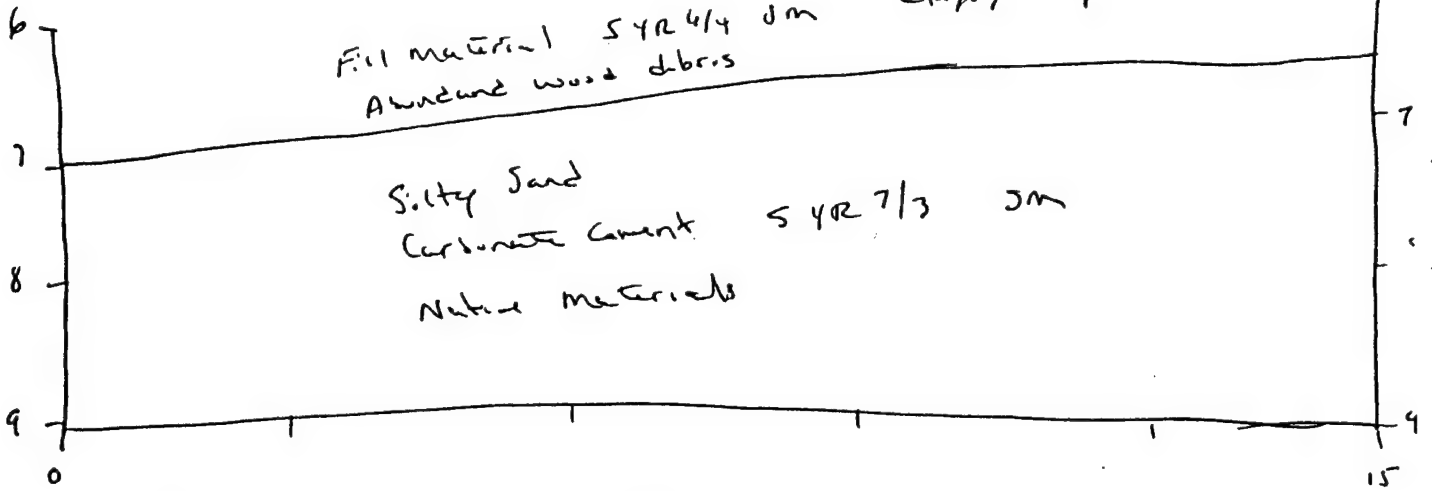 6
Fill material 5 YR 4/4 SM
Abundand wood debris
7
7
Silty Sand
Carbonate Cement 5 YR 7/3 SM
8
Native materials
9
9
0
15